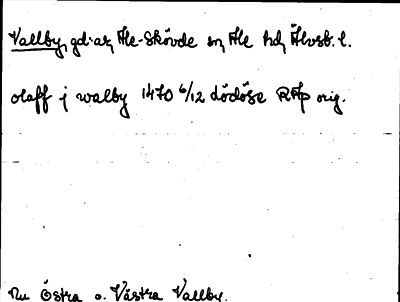 Vallby, gd-ar, Ale-Skövde sn, Ale hd, Älvsb. l.
olaff j walby 1470 6/12 Lödöse RAp orig.
Nu Östra o. Västra Vallby.